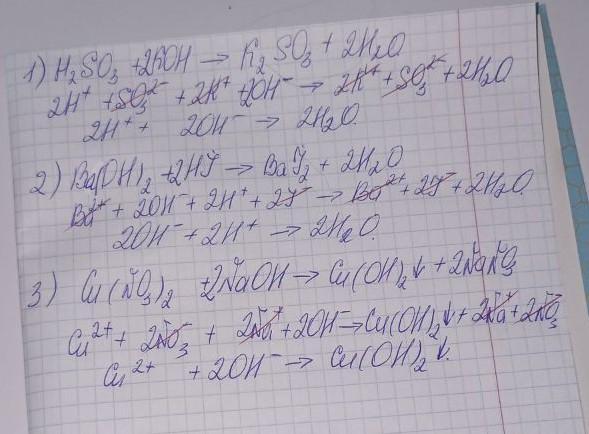 1) H₂SO₃ + 2KOH → K₂SO₃ + 2H₂O
2H⁺ + SO₃²⁻ + 2K⁺ + 2OH⁻ → 2K⁺ + SO₃²⁻ + 2H₂O
2H⁺ + 2OH⁻ → 2H₂O.
2) Ba(OH)₂ + 2HJ → BaJ₂ + 2H₂O
Ba²⁺ + 2OH⁻ + 2H⁺ + 2J⁻ → Ba²⁺ + 2J⁻ + 2H₂O
2OH⁻ + 2H⁺ → 2H₂O.
3) Cu(NO₃)₂ + 2NaOH → Cu(OH)₂↓ + 2NaNO₃
Cu²⁺ + 2NO₃⁻ + 2Na⁺ + 2OH⁻ → Cu(OH)₂↓ + 2Na⁺ + 2NO₃⁻
Cu²⁺ + 2OH⁻ → Cu(OH)₂↓.